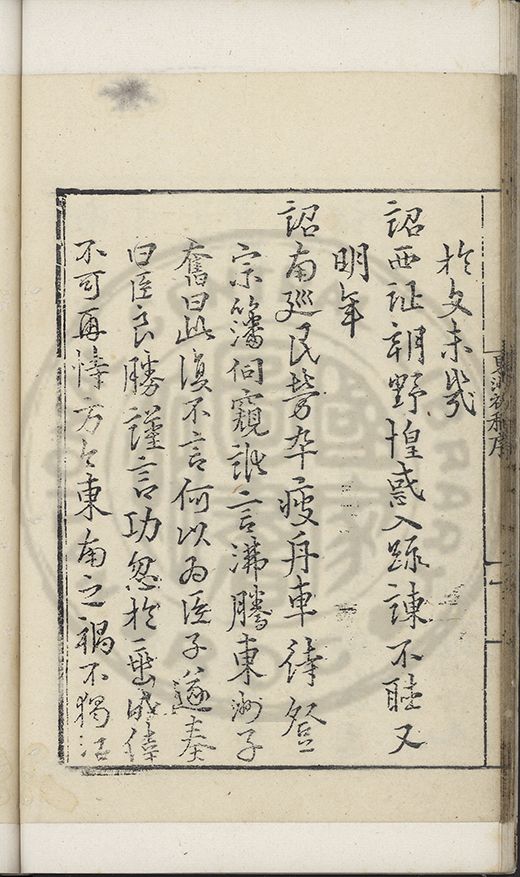 東洲初稿序
於文未幾
詔西征朝野惶惑入疏諫不又
明年
詔南廵民勞卒疲舟車待發
宗籓伺窺訛言沸騰東洲子
奮曰此復不言何以為臣子遂奏
曰臣良勝謹言功忽於垂成倖
不可再恃方今東南之禍不獨江